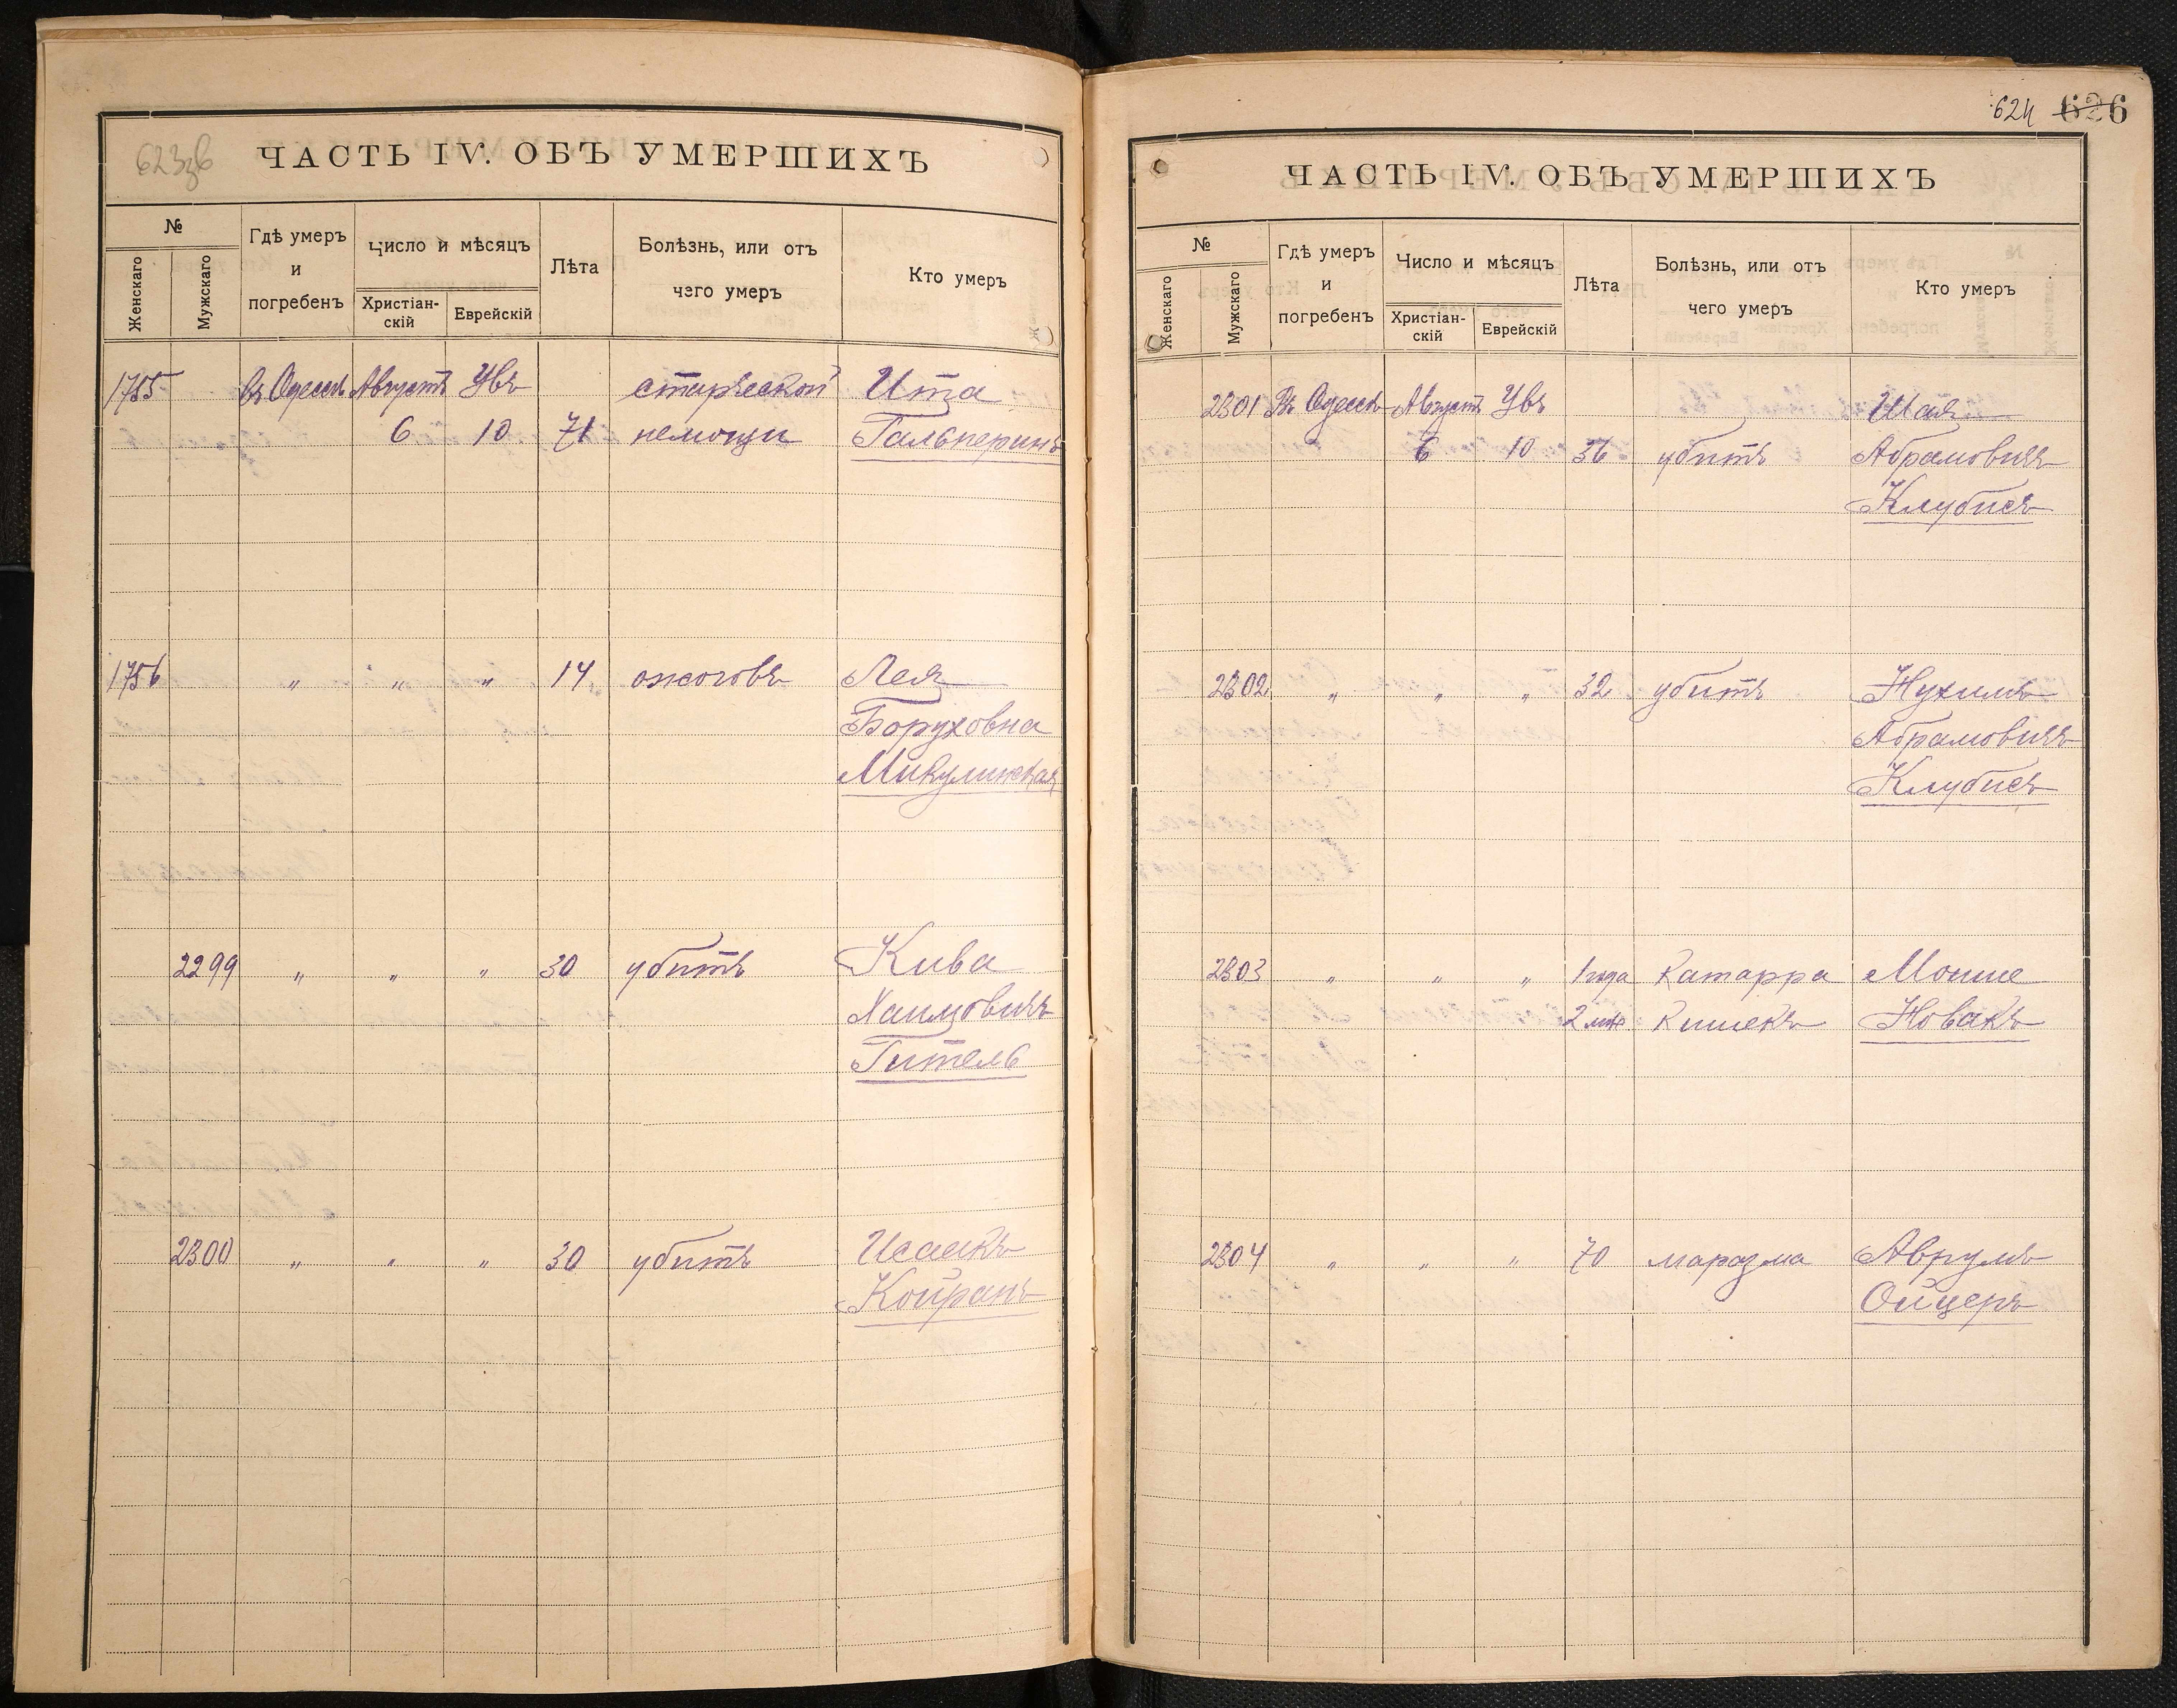 623зв
ЧАСТЬ IV. ОБЪ УМЕРШИХЪ
№
Женскаго
Мужскаго
Гдѣ умеръ
и
погребенъ
Число и мѣсяцъ
Христіан-
скій
Еврейскій
Лѣта
Болѣзнь, или отъ
чего умеръ
Кто умеръ
1755 въ Одессѣ Августъ Увъ старческой Ита
6 10 71 немощи Гальперинъ
1756 " " " 14 ожоговъ Лея
Боруховна
Микулинская
2299 " " " 30 убитъ Кива
Хаимовичъ
Гитель
2300 " " " 30 убитъ Исаакъ
Койранъ
624 626
ЧАСТЬ IV. ОБЪ УМЕРШИХЪ
№
Женскаго
Мужскаго
Гдѣ умеръ
и
погребенъ
Число и мѣсяцъ
Христіан-
скій
Еврейскій
Лѣта
Болѣзнь, или отъ
чего умеръ
Кто умеръ
2301 Въ Одессѣ Августъ Увъ Шая
6 10 36 убитъ Абрамовичъ
Клубисъ
2302 " " " 32 убитъ Нухимъ
Абрамовичъ
Клубисъ
2303 " " " 1 года Катарра Мошие
2 мѣс Кишекъ Новакъ
2304 " " " 70 маразма Аврумъ
Ойцеръ